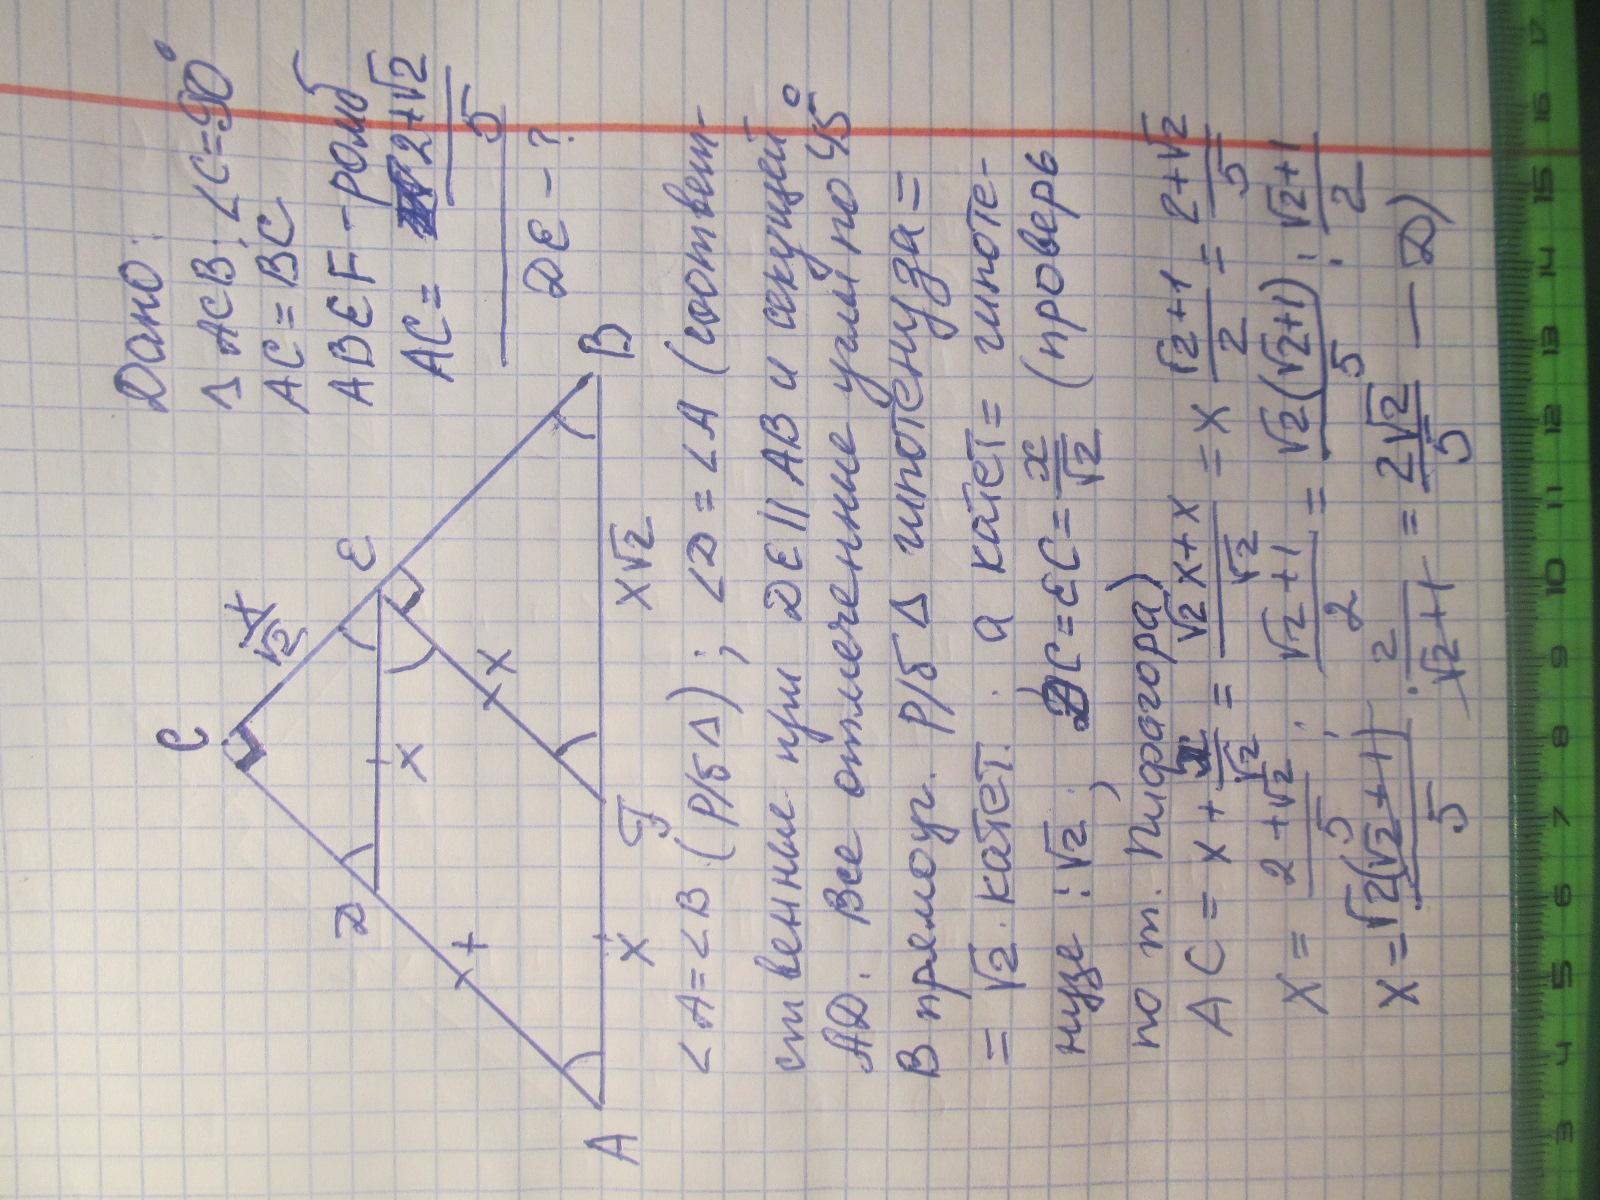 Дано:
Δ ACB; ∠C=90°
AC=BC
ABEF - ромб
AC= 2+√2 / 5
DE - ?
C
x/√2
D
E
x
x
x
x√2
A
F
B
∠A=∠B (Р/б Δ); ∠D=∠A (соответ-
ственные при DE∥AB и секущей
AD. Все отмеченные углы по 45°
В прямоуг. Р/б Δ гипотенуза =
= √2·катет. а катет= гипоте-
нузе :√2. DC=EC= x/√2 (проверь
по т. Пифагора)
AC = x + x/√2 = √2x+x / √2 = x √2+1 / 2 = 2+√2 / 5
x= 2+√2 / 5 : √2+1 / 2 = √2(√2+1) / 5 : √2+1 / 2
x= √2(√2+1) / 5 · 2 / √2+1 = 2√2 / 5 — D)
3 4 5 6 7 8 9 10 11 12 13 14 15 16 17